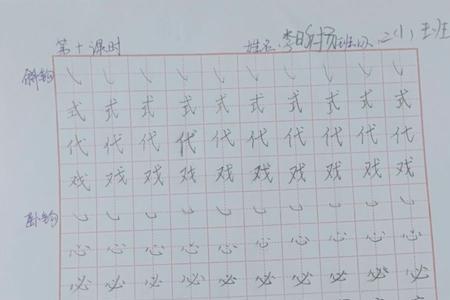 第十课时 姓名:李 班次:二(1)班
斜钩 ㇂ ㇂ ㇂ ㇂ ㇂ ㇂ ㇂ ㇂ ㇂ ㇂
式 式 式 式 式 式 式 式 式 式
代 代 代 代 代 代 代 代 代 代
戏 戏 戏 戏 戏 戏 戏 戏 戏 戏
卧钩 ㇃ ㇃ ㇃ ㇃ ㇃ ㇃ ㇃ ㇃ ㇃ ㇃
心 心 心 心 心 心 心 心 心 心
必 必 必 必 必 必 必 必 必 必